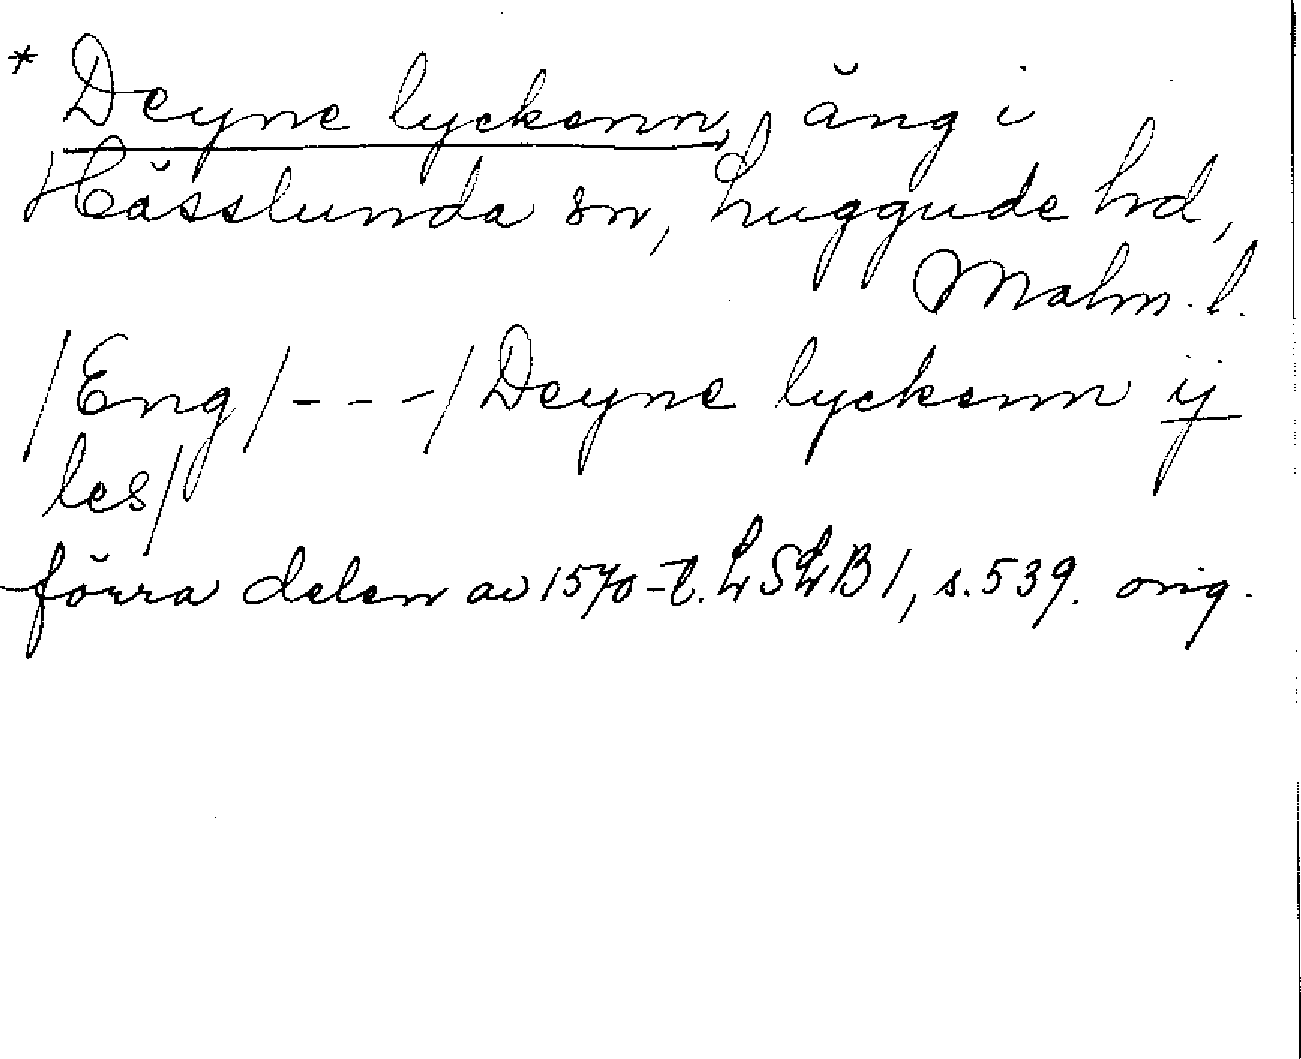 * Deyne lyckenn, äng i
Hässlunda sn, Luggude hd,
Malm. l.
/Eng/ - - - / Deyne lyckenn ij
les/
förra delen av 1570-t. LSLB I, s. 539. orig.